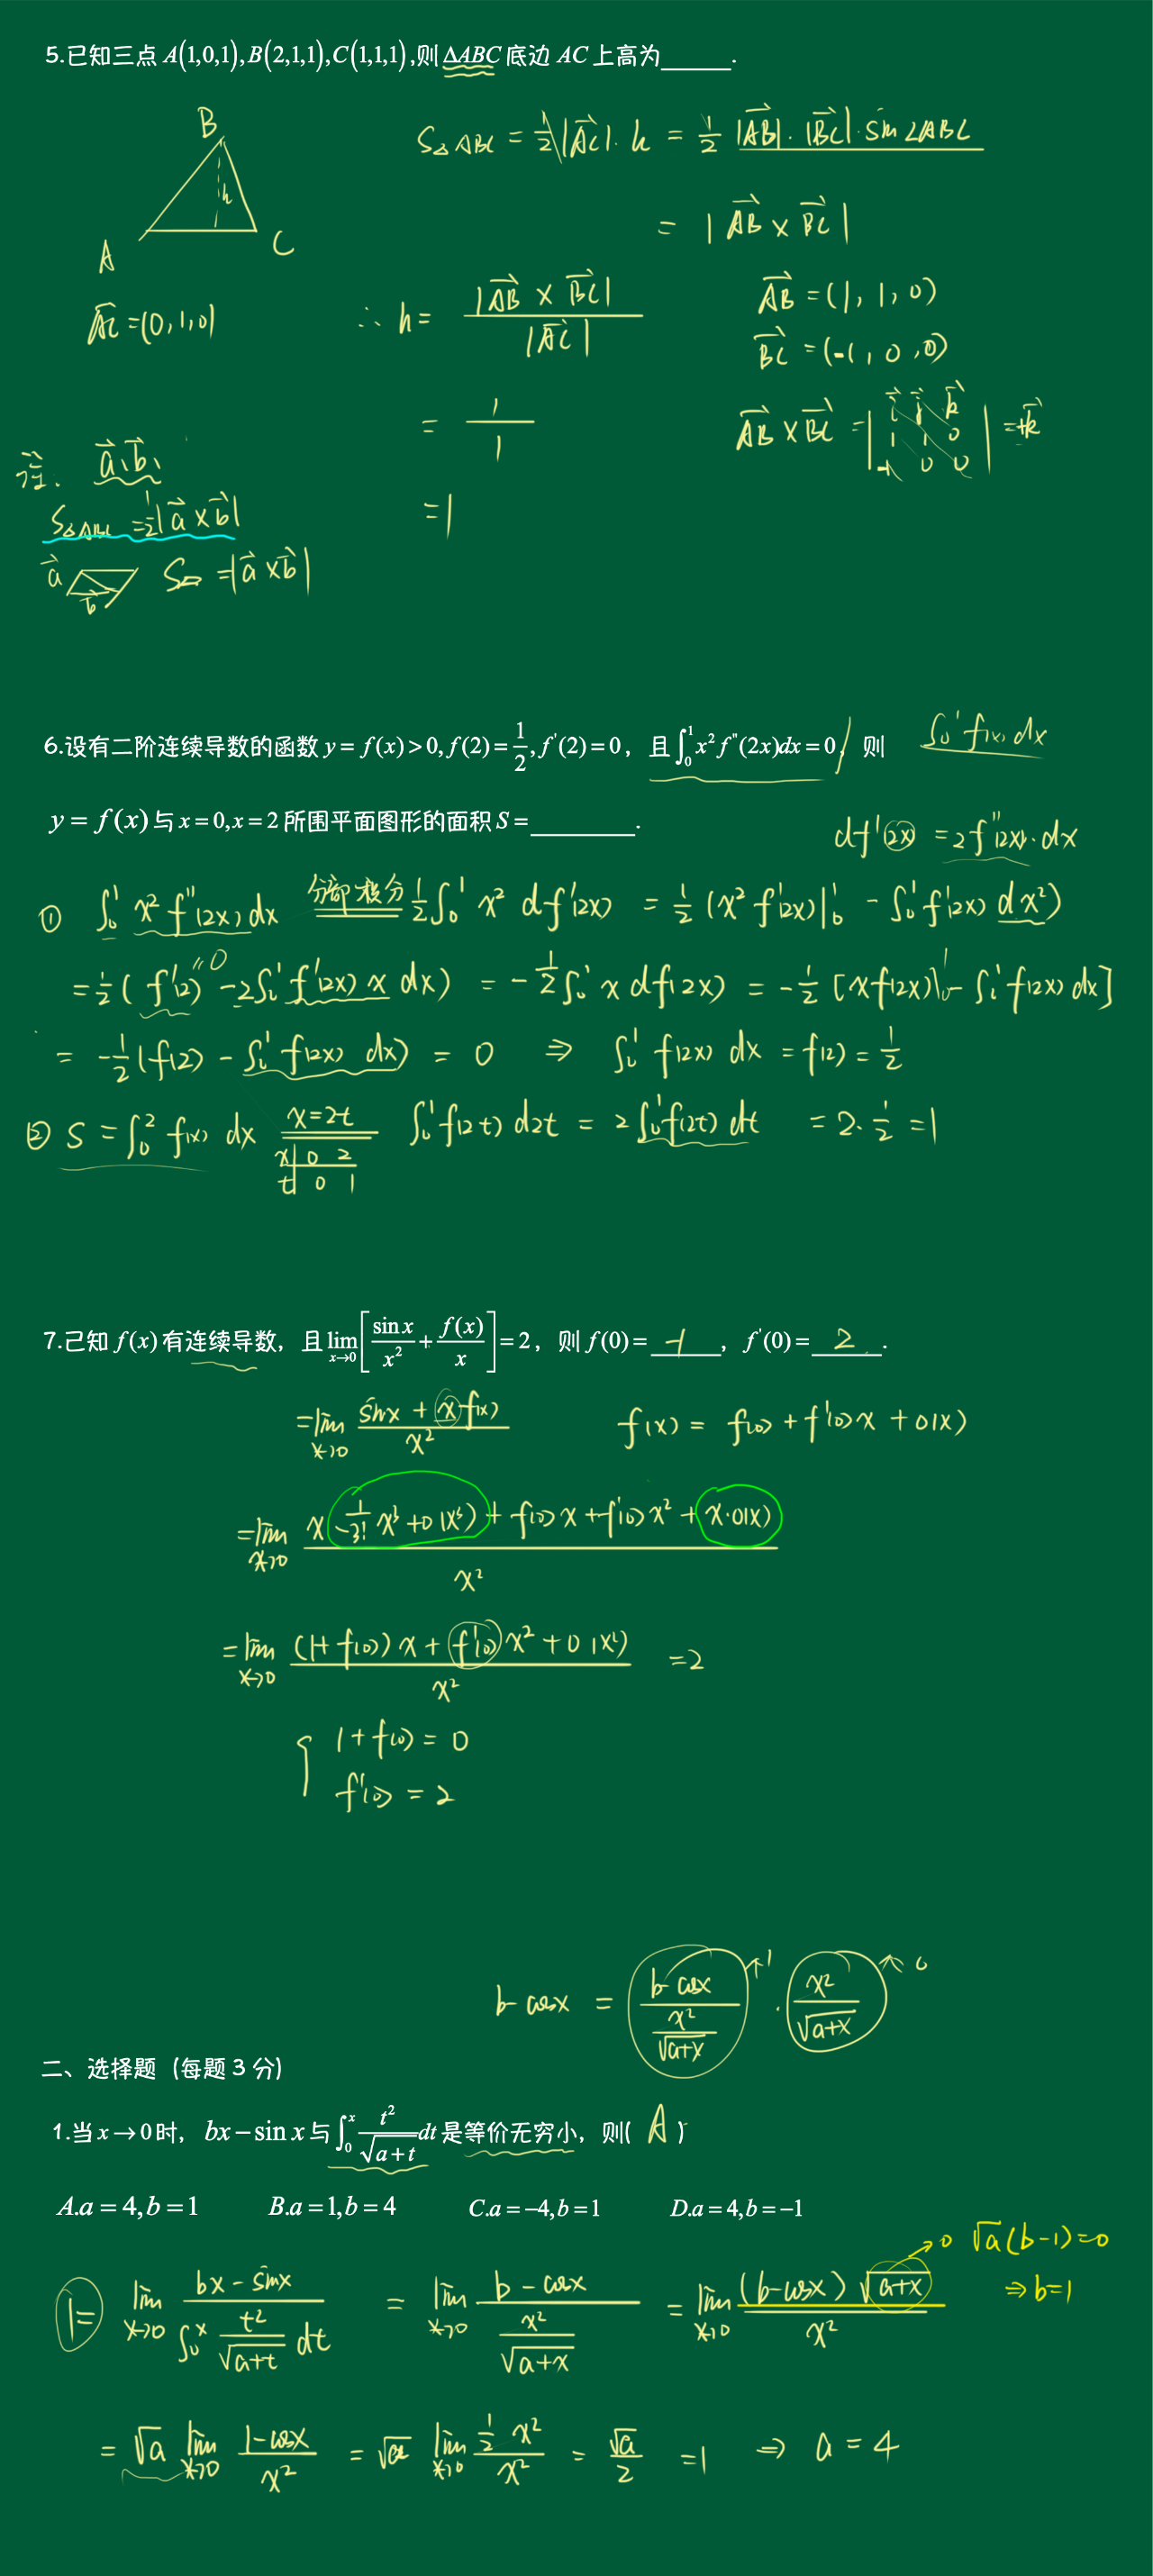 5.已知三点 A(1,0,1),B(2,1,1),C(1,1,1),则 ΔABC 底边 AC 上高为______.
B
h
A C
S△ABC = 1/2 |AC|·h = 1/2 |AB|·|BC|·sin∠ABC
= |AB × BC|
AC = (0,1,0)
∴ h = |AB × BC| / |AC|
AB = (1, 1, 0)
BC = (-1, 0, 0)
= 1/1
AB × BC = | i j k ; 1 1 0 ; -1 0 0 | = +k
= 1
注: a、b、
S△ABC = 1/2 |a × b|
a b S▱ = |a × b|
6.设有二阶连续导数的函数 y = f(x) > 0, f(2) = 1/2, f'(2) = 0, 且 ∫₀¹ x² f"(2x)dx = 0, 则
∫₀¹ f(x) dx
y = f(x) 与 x = 0, x = 2 所围平面图形的面积 S = ________.
df'(2x) = 2f''(2x)·dx
① ∫₀¹ x² f''(2x) dx 分部积分 1/2 ∫₀¹ x² df'(2x) = 1/2 (x² f'(2x)|₀¹ - ∫₀¹ f'(2x) dx²)
= 1/2 ( f'(2) - 2∫₀¹ f'(2x) x dx) = -1/2 ∫₀¹ x df(2x) = -1/2 [x f(2x)|₀¹ - ∫₀¹ f(2x) dx]
"0
= -1/2 (f(2) - ∫₀¹ f(2x) dx) = 0 ⇒ ∫₀¹ f(2x) dx = f(2) = 1/2
② S = ∫₀² f(x) dx x=2t ∫₀¹ f(2t) d2t = 2∫₀¹ f(2t) dt = 2·1/2 = 1
x 0 2
t 0 1
7.已知 f(x) 有连续导数, 且 lim x→0 [sin x / x² + f(x) / x] = 2, 则 f(0) = -1, f'(0) = 2.
= lim x→0 (sinx + x f(x)) / x² f(x) = f(0) + f'(0)x + o(x)
= lim x→0 (x -1/3! x³ + o(x³) + f(0)x + f'(0)x² + x·o(x)) / x²
= lim x→0 ((1+f(0))x + f'(0)x² + o(x²)) / x² = 2
{ 1+f(0) = 0
f'(0) = 2
b-cosx = (b-cosx) / (x²/√(a+x)) · x²/√(a+x)
↑1 ↑0
二、选择题 (每题 3 分)
1.当 x → 0 时, bx - sin x 与 ∫₀ˣ t²/√(a+t) dt 是等价无穷小, 则( A )
A.a = 4, b = 1 B.a = 1, b = 4 C.a = -4, b = 1 D.a = 4, b = -1
0 √a(b-1)=0
⇒ b=1
1 = lim x→0 (bx - sinx) / (∫₀ˣ t²/√(a+t) dt) = lim x→0 (b - cosx) / (x²/√(a+x)) = lim x→0 (b-cosx)√(a+x) / x²
= √a lim x→0 (1-cosx)/x² = √a lim x→0 (1/2 x²)/x² = √a/2 = 1 ⇒ a = 4